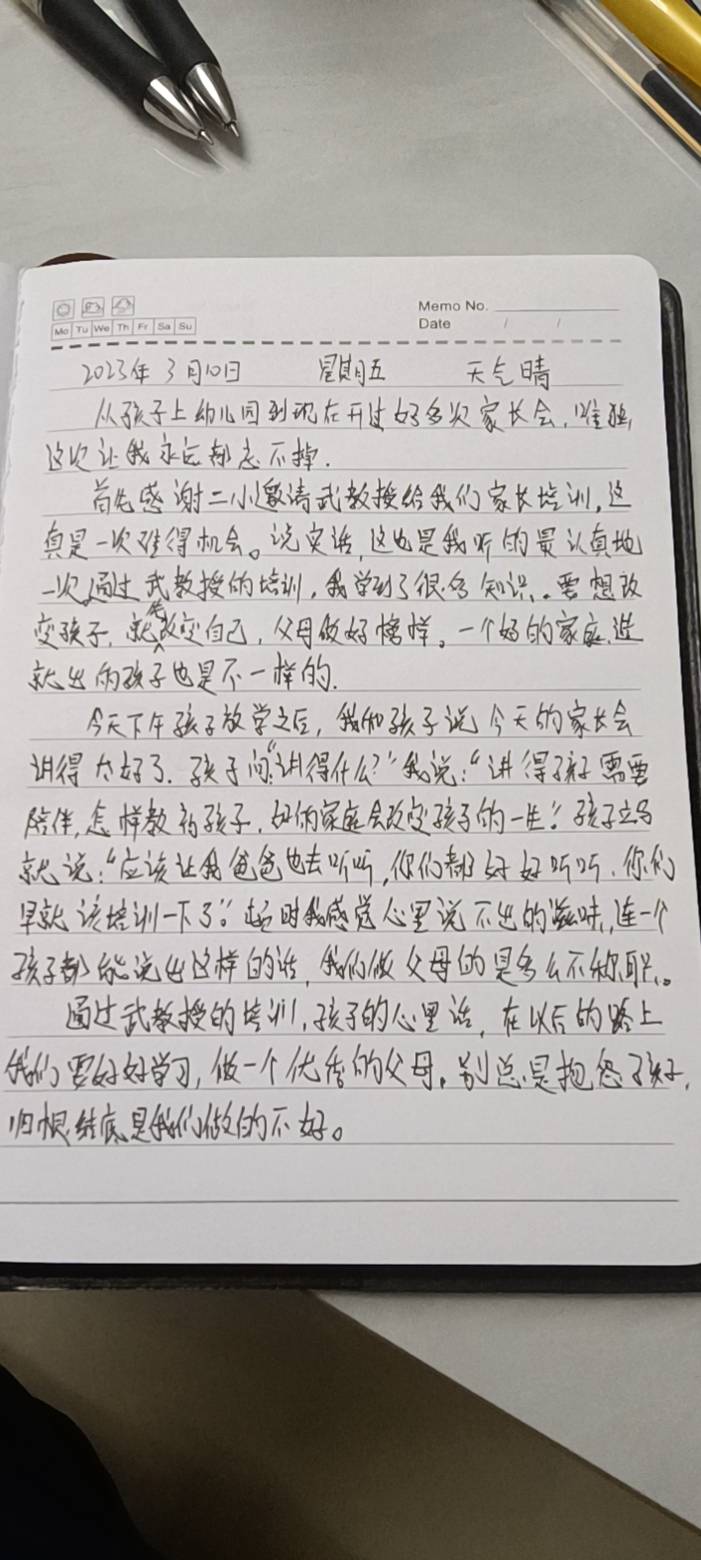 Memo No.
Mo Tu We Th Fr Sa Su
Date / /
2023年3月10日 星期五 天气晴
从孩子上幼儿园到现在开过好多次家长会,唯独
这次让我永远都忘不掉.
首先感谢二小邀请武教授给我们家长培训,这
真是一次难得机会。说实话,这也是我听的最认真地
一次,通过武教授的培训,我学到了很多知识。要想改
变孩子,就先改变自己,父母做好榜样。一个好的家庭,造
就出的孩子也是不一样的.
今天下午孩子放学之后,我和孩子说今天的家长会
讲得太好了.孩子问:“讲得什么?”我说:“讲得孩子需要
陪伴,怎样教育孩子,好的家庭会改变孩子的一生.”孩子立马
就说:“应该让我爸爸也去听听,你们都好好听听.你们
早就该培训一下了.”当时我感觉心里说不出的滋味,连一个
孩子都能说出这样的话,我们做父母的是多么不称职。
通过武教授的培训,孩子的心里话,在以后的路上
我们要好好学习,做一个优秀的父母。别总是抱怨孩子,
归根结底是我们做的不好。